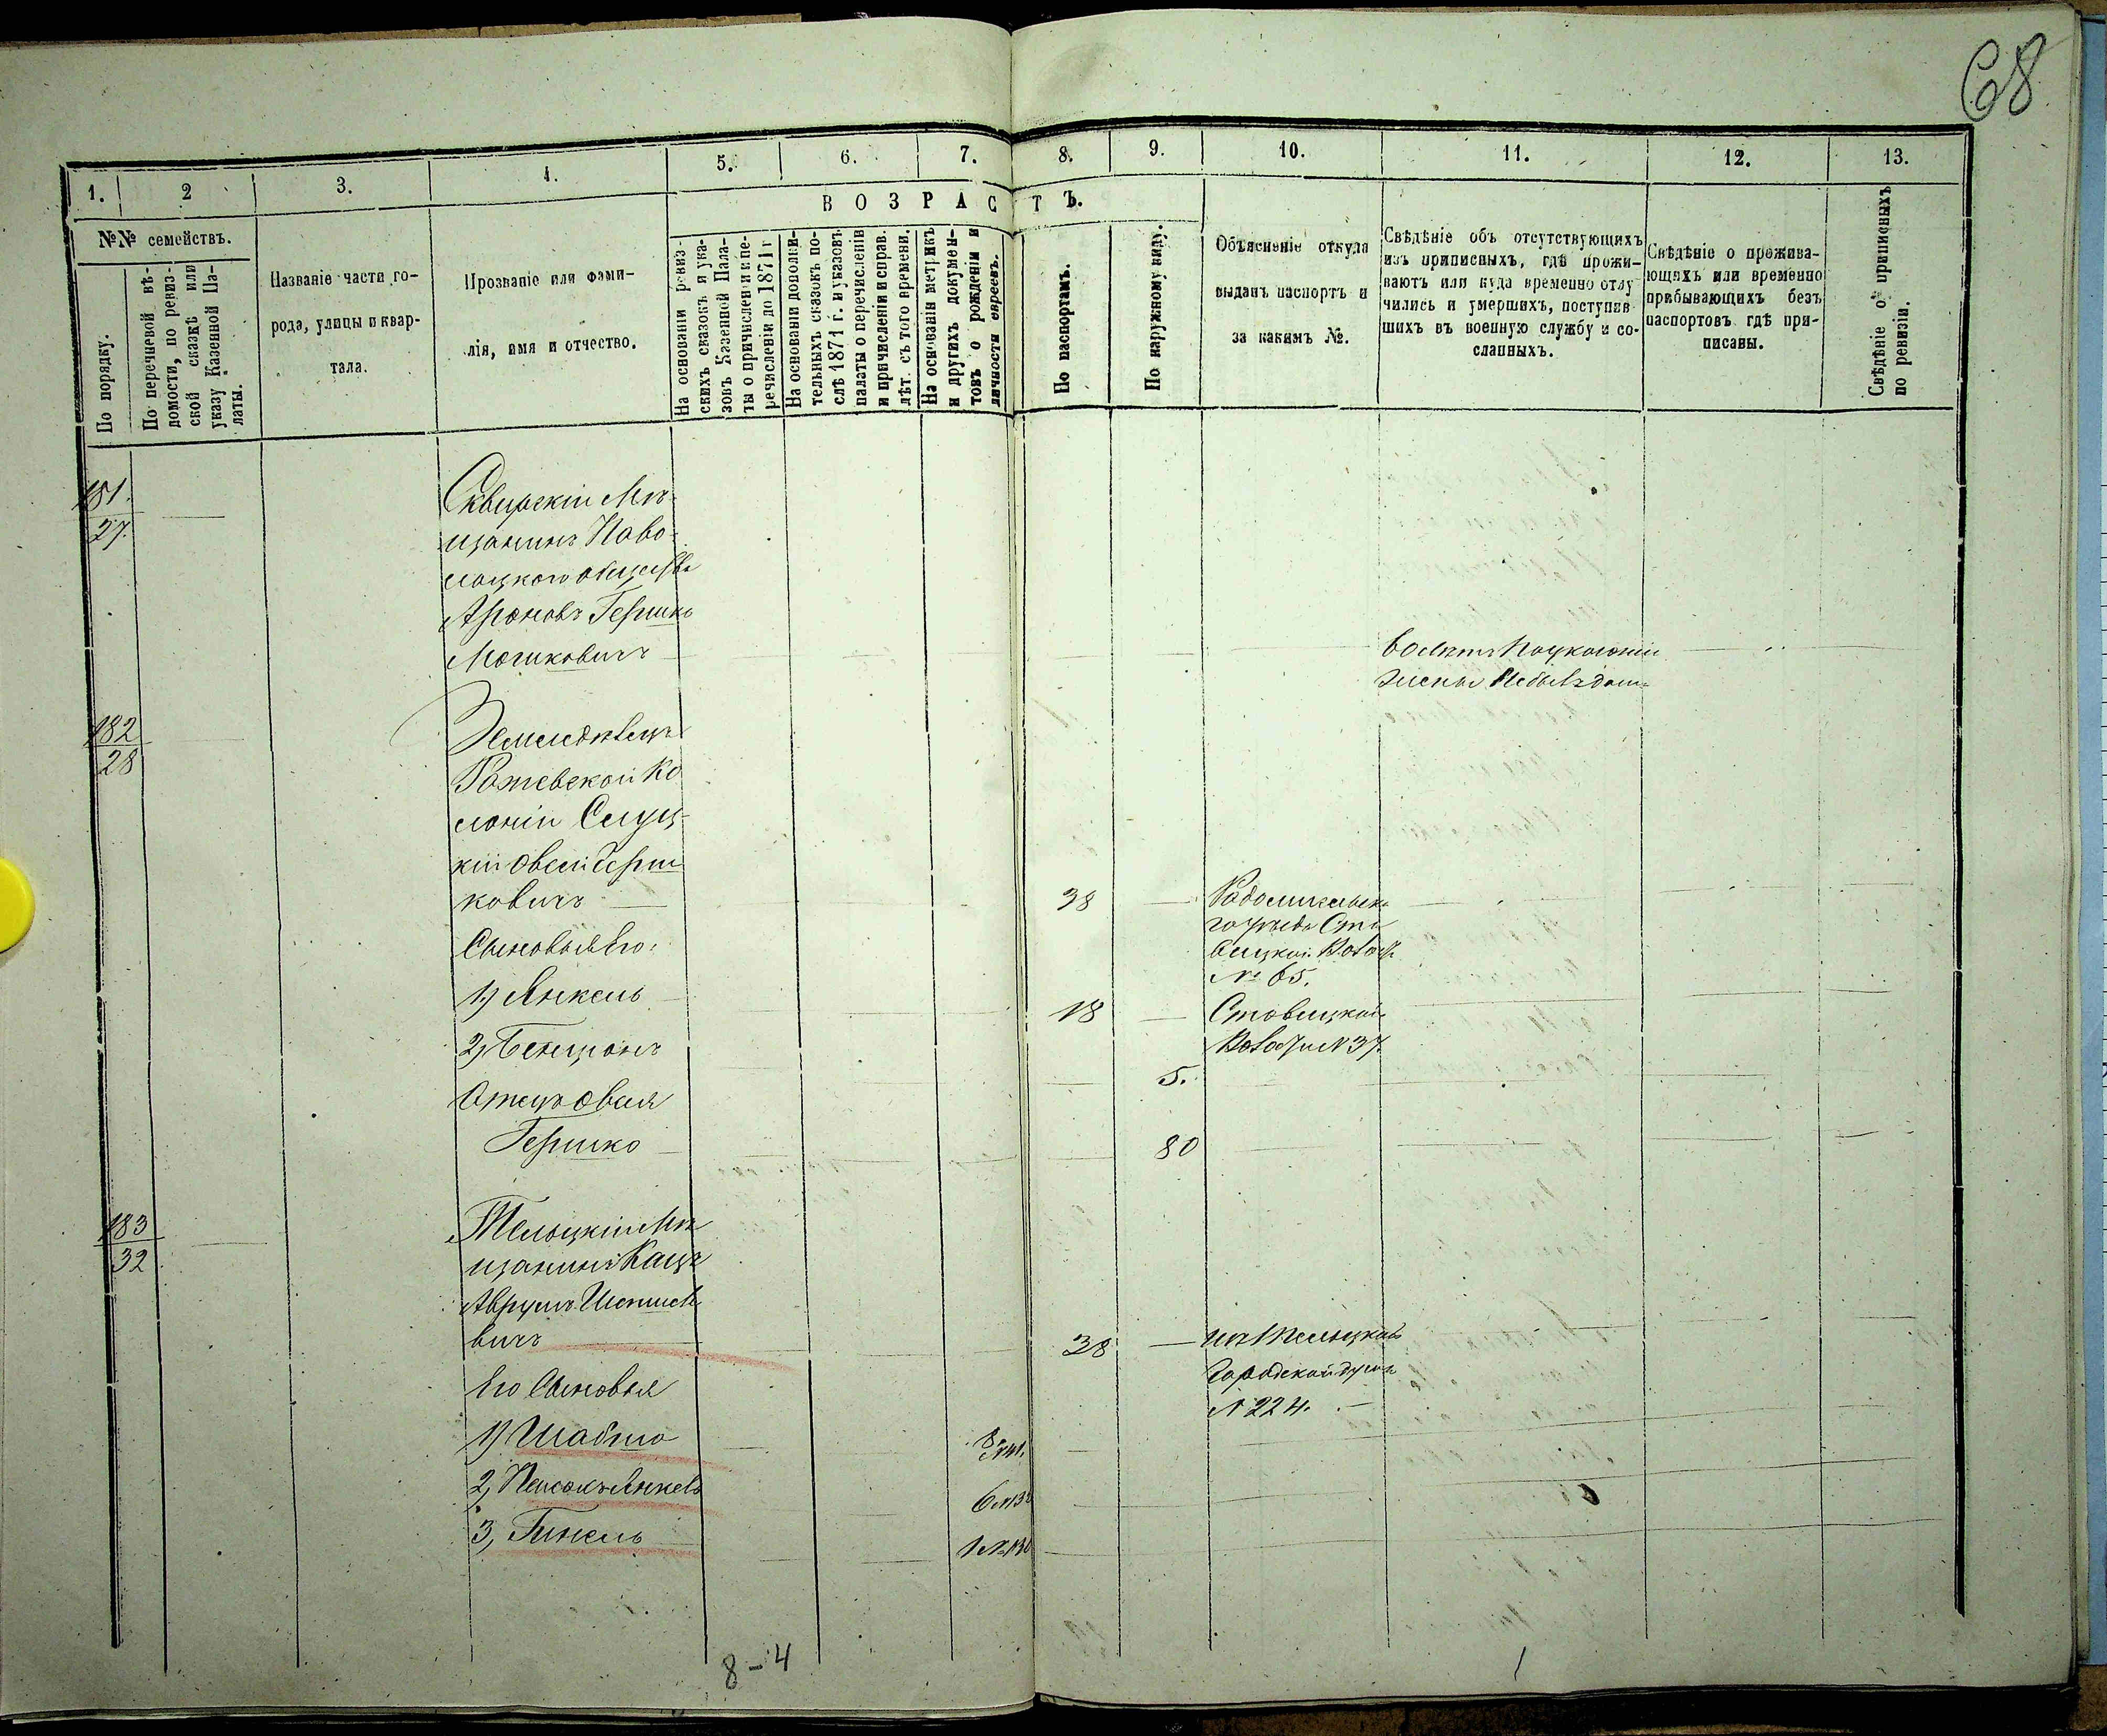 68
1.
2
3.
4.
5.
6.
7.
8.
9.
10.
11.
12.
13.
№№ семействъ.
По порядку.
По перечневой вѣ-
домости, по ревиз-
ской сказкѣ или
указу Казенной Па-
латы.
Названіе части го-
рода, улицы и квар-
тала.
Прозваніе или фами-
лія, имя и отчество.
ВОЗРАСТЪ.
На основаніи ревиз-
скихъ сказокъ и ука-
зовъ Казенной Пала-
ты о причисленіи и пе-
речисленіи до 1871 г.
На основаніи дополни-
тельныхъ сказокъ по-
слѣ 1871 г. и указовъ
палаты о перечисленіи
и причисленіи и справ.
лѣт. съ того времени.
На основаніи метрикъ
и другихъ докумен-
товъ о рожденіи и
личности евреевъ.
По паспортамъ.
По наружному виду.
Объясненіе откуда
выданъ паспортъ и
за какимъ №.
Свѣдѣніе объ отсутствующихъ
изъ приписныхъ, гдѣ прожи-
ваютъ или куда временно отлу-
чились и умершихъ, поступив-
шихъ въ военную службу и со-
сланныхъ.
Свѣдѣніе о прожива-
ющихъ или временно
прибывающихъ безъ
паспортовъ гдѣ при-
писаны.
Свѣдѣніе о приписныхъ
по ревизіи.
181.
27.
Сквирскій Мѣ-
щанинъ Паво-
лоцкого общества
Ароновъ Гершко
Мошковичъ
жены
182
28
Земледѣлецъ
Рожевской Ко
лоніи Слуц-
кій Овсей Герш
ковичъ
38
Радомисльска
го уѣзда Ста
вицкой Волости
№ 65.
Сыновья Его:
1) Янкель
18
Ставицкой
Волости № 37.
2) Бенціонъ
5.
Отецъ Овсея
Гершко
80
183
32
Тельцкій Мѣ
щанинъ Кацъ
Аврумъ
вичъ
38
Городской
№ 224.
Его Сыновья
1)
8 № 41.
2) Янкель
3)
8-4